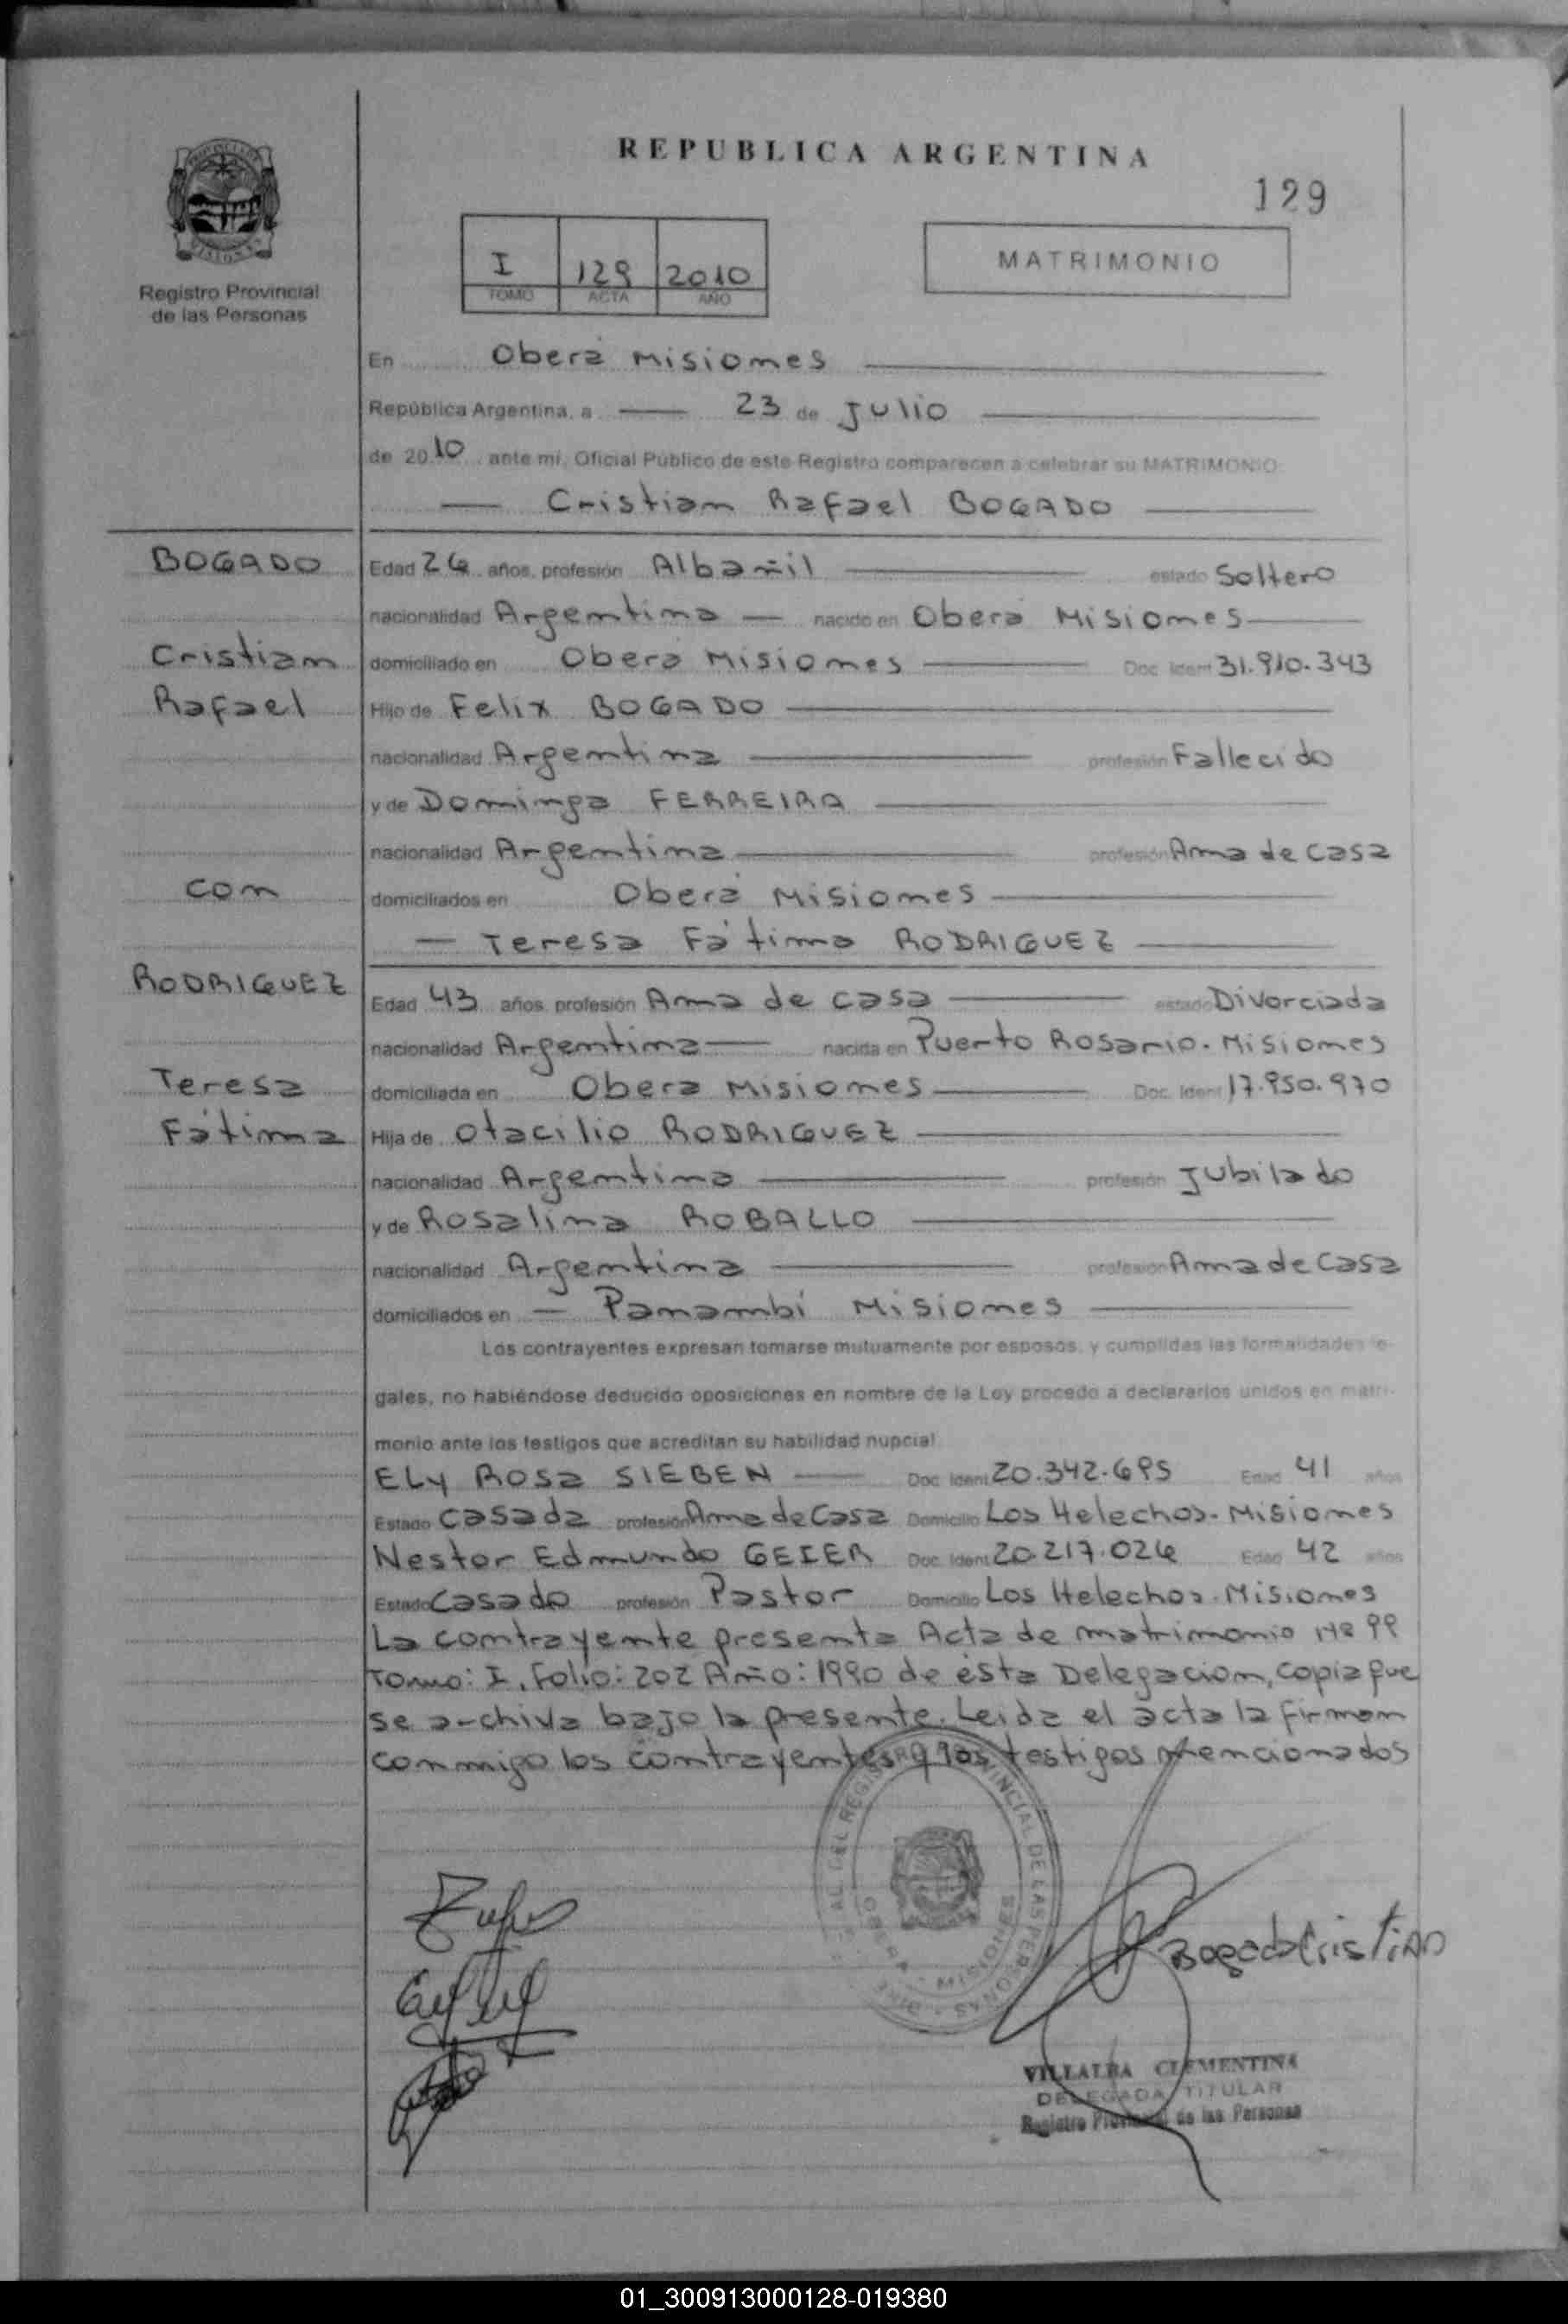 REPUBLICA ARGENTINA
129
Registro Provincial
de las Personas
I 129 2010
TOMO ACTA AÑO
MATRIMONIO
En Oberá Misiones
República Argentina, a 23 de Julio
de 2010 ante mi, Oficial Público de este Registro comparecen a celebrar su MATRIMONIO:
Cristian Rafael BOGADO
BOGADO
Edad 24 años, profesión Albañil estado Soltero
nacionalidad Argentina nacido en Oberá Misiones
Cristian
domiciliado en Oberá Misiones Doc. Ident 31.910.343
Rafael
Hijo de Felix BOGADO
nacionalidad Argentina profesión Fallecido
y de Dominga FERREIRA
nacionalidad Argentina profesión Ama de Casa
con
domiciliados en Oberá Misiones
Teresa Fátima RODRIGUEZ
RODRIGUEZ
Edad 43 años, profesión Ama de casa estado Divorciada
nacionalidad Argentina nacida en Puerto Rosario. Misiones
Teresa
domiciliada en Oberá Misiones Doc. Ident 17.950.970
Fátima
Hija de Otacilio RODRIGUEZ
nacionalidad Argentina profesión Jubilado
y de Rosalina ROBALLO
nacionalidad Argentina profesión Ama de Casa
domiciliados en Panambí Misiones
Los contrayentes expresan tomarse mutuamente por esposos, y cumplidas las formalidades le-
gales, no habiéndose deducido oposiciones en nombre de la Ley procedo a declararlos unidos en matri-
monio ante los testigos que acreditan su habilidad nupcial
Ely Rosa SIEBEN Doc. Ident 20.342.695 Edad 41 años
Estado Casada profesión Ama de Casa Domicilio Los Helechos. Misiones
Nestor Edmundo GEIER Doc. Ident 20.217.024 Edad 42 años
Estado Casado profesión Pastor Domicilio Los Helechos. Misiones
La contrayente presenta Acta de matrimonio Nº 99
Tomo: I. Folio: 202 Año: 1990 de ésta Delegacion, copia que
se archiva bajo la presente. Leida el acta la firman
conmigo los contrayentes y los testigos mencionados
REGISTRO PROVINCIAL DE LAS PERSONAS
OBERA - MISIONES
Bogado Cristian
VILLALBA CLEMENTINA
DELEGADA TITULAR
Registro Provincial de las Personas
01_300913000128-019380